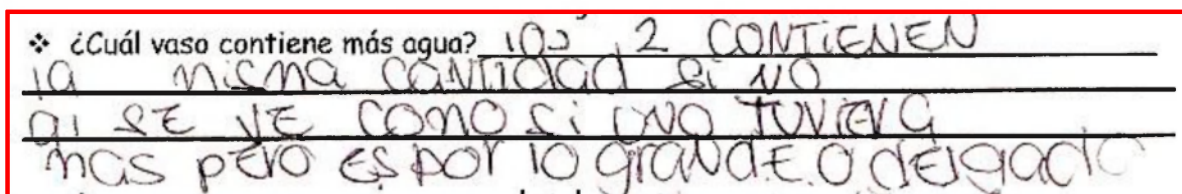 ❖ ¿Cuál vaso contiene más agua? los 2 CONTiENEN
la misma CANTIDAD Si NO
al SE VE COMO Si UNO TUViErA
mas pero ES por lo grANdE o delgado